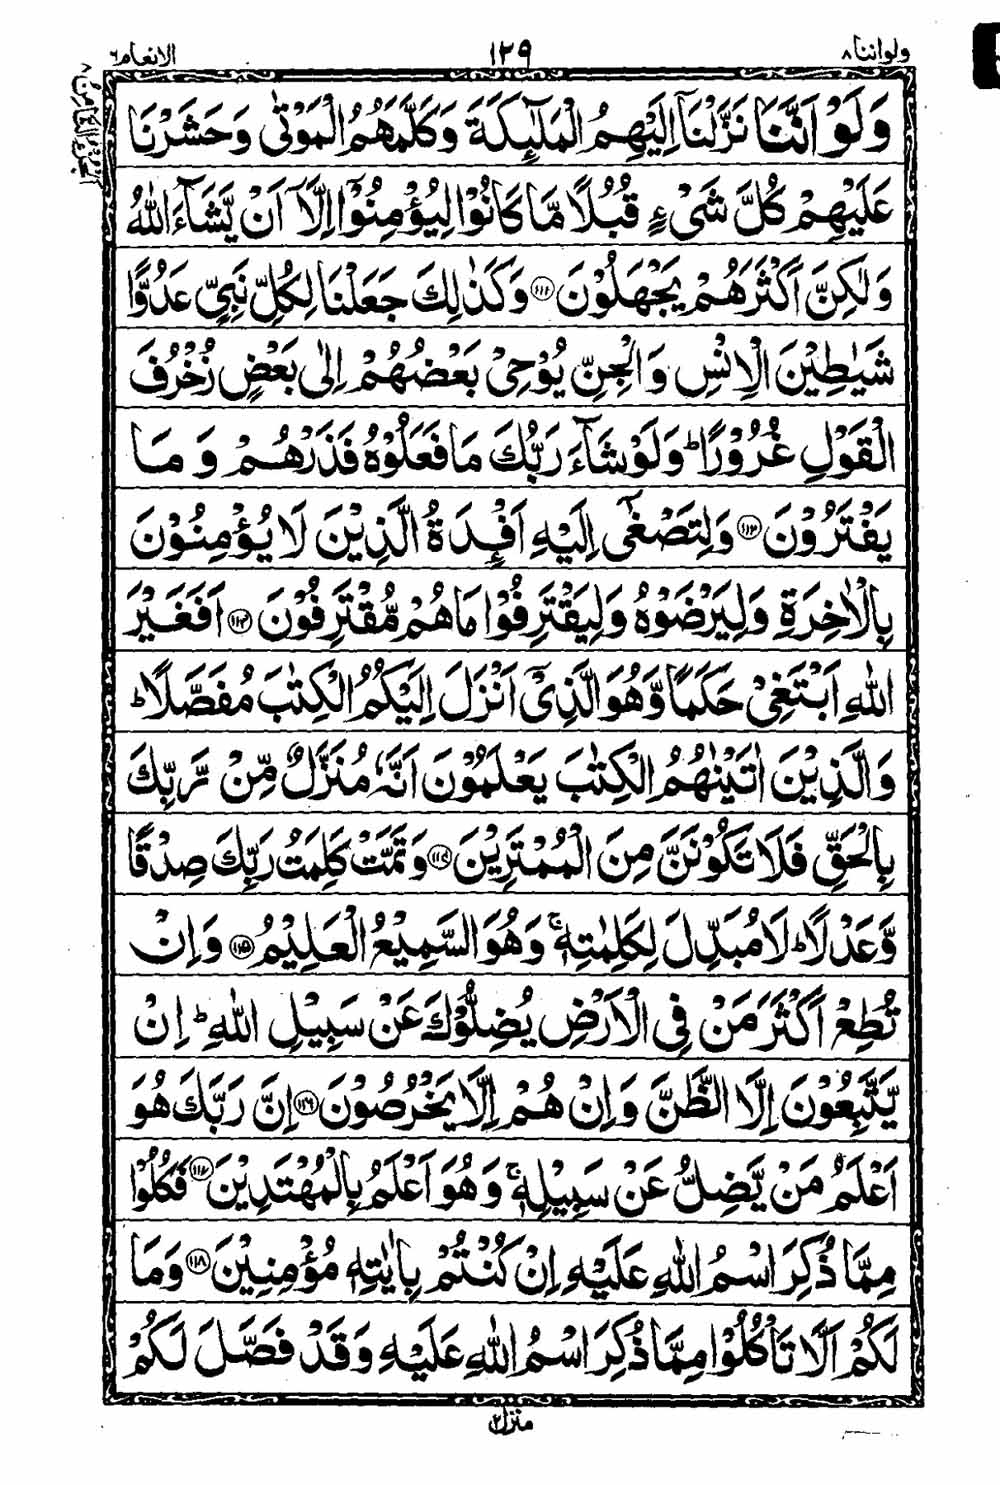 ولواننا ٨
١٢٩
الانعام ٦
وَلَوْ اَنَّنَا نَزَّلْنَاۤ اِلَيْهِمُ الْمَلٰٓئِكَةَ وَكَلَّمَهُمُ الْمَوْتٰى وَحَشَرْنَا
عَلَيْهِمْ كُلَّ شَىْءٍ قُبُلًا مَّا كَانُوْا لِيُؤْمِنُوْۤا اِلَّاۤ اَنْ يَّشَآءَ اللّٰهُ
وَلٰكِنَّ اَكْثَرَهُمْ يَجْهَلُوْنَ ۝١١١ وَكَذٰلِكَ جَعَلْنَا لِكُلِّ نَبِىٍّ عَدُوًّا
شَيٰطِيْنَ الْاِنْسِ وَالْجِنِّ يُوْحِىْ بَعْضُهُمْ اِلٰى بَعْضٍ زُخْرُفَ
الْقَوْلِ غُرُوْرًا ؕ وَلَوْ شَآءَ رَبُّكَ مَا فَعَلُوْهُ فَذَرْهُمْ وَمَا
يَفْتَرُوْنَ ۝١١٢ وَلِتَصْغٰۤى اِلَيْهِ اَفْـِٕدَةُ الَّذِيْنَ لَا يُؤْمِنُوْنَ
بِالْاٰخِرَةِ وَلِيَرْضَوْهُ وَلِيَقْتَرِفُوْا مَا هُمْ مُّقْتَرِفُوْنَ ۝١١٣ اَفَغَيْرَ
اللّٰهِ اَبْتَغِىْ حَكَمًا وَّهُوَ الَّذِىْۤ اَنْزَلَ اِلَيْكُمُ الْكِتٰبَ مُفَصَّلًا ؕ
وَالَّذِيْنَ اٰتَيْنٰهُمُ الْكِتٰبَ يَعْلَمُوْنَ اَنَّهٗ مُنَزَّلٌ مِّنْ رَّبِّكَ
بِالْحَقِّ فَلَا تَكُوْنَنَّ مِنَ الْمُمْتَرِيْنَ ۝١١٤ وَتَمَّتْ كَلِمَتُ رَبِّكَ صِدْقًا
وَّعَدْلًا ؕ لَا مُبَدِّلَ لِكَلِمٰتِهٖ ۚ وَهُوَ السَّمِيْعُ الْعَلِيْمُ ۝١١٥ وَاِنْ
تُطِعْ اَكْثَرَ مَنْ فِى الْاَرْضِ يُضِلُّوْكَ عَنْ سَبِيْلِ اللّٰهِ ؕ اِنْ
يَّتَّبِعُوْنَ اِلَّا الظَّنَّ وَاِنْ هُمْ اِلَّا يَخْرُصُوْنَ ۝١١٦ اِنَّ رَبَّكَ هُوَ
اَعْلَمُ مَنْ يَّضِلُّ عَنْ سَبِيْلِهٖ ۚ وَهُوَ اَعْلَمُ بِالْمُهْتَدِيْنَ ۝١١٧ فَكُلُوْا
مِمَّا ذُكِرَ اسْمُ اللّٰهِ عَلَيْهِ اِنْ كُنْتُمْ بِاٰيٰتِهٖ مُؤْمِنِيْنَ ۝١١٨ وَمَا
لَكُمْ اَلَّا تَاْكُلُوْا مِمَّا ذُكِرَ اسْمُ اللّٰهِ عَلَيْهِ وَقَدْ فَصَّلَ لَكُمْ
منزل ٢